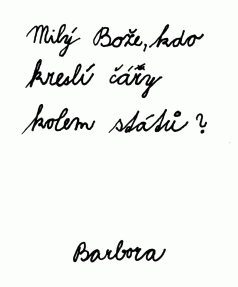 Milý Bože, kdo
kreslí čáry
kolem států?
Barbora